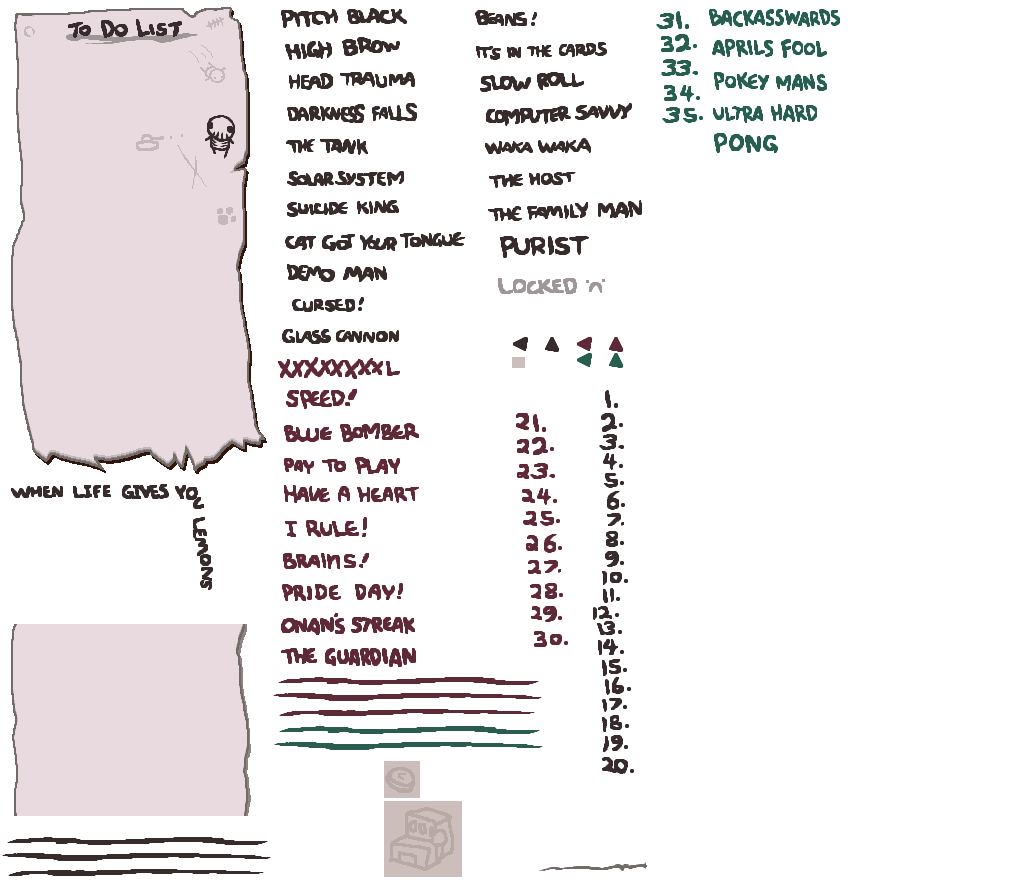 TO DO LIST
WHEN LIFE GIVES YOU LEMONS
PITCH BLACK
HIGH BROW
HEAD TRAUMA
DARKNESS FALLS
THE TANK
SOLAR SYSTEM
SUICIDE KING
CAT GOT YOUR TONGUE
DEMO MAN
CURSED!
GLASS CANNON
XXXXXXXXL
SPEED!
BLUE BOMBER
PAY TO PLAY
HAVE A HEART
I RULE!
BRAINS!
PRIDE DAY!
ONAN'S STREAK
THE GUARDIAN
BEANS!
IT'S IN THE CARDS
SLOW ROLL
COMPUTER SAVVY
WAKA WAKA
THE HOST
THE FAMILY MAN
PURIST
LOCKED 'n'
21.
22.
23.
24.
25.
26.
27.
28.
29.
30.
1.
2.
3.
4.
5.
6.
7.
8.
9.
10.
11.
12.
13.
14.
15.
16.
17.
18.
19.
20.
31.
32.
33.
34.
35.
BACKASSWARDS
APRILS FOOL
POKEY MANS
ULTRA HARD
PONG